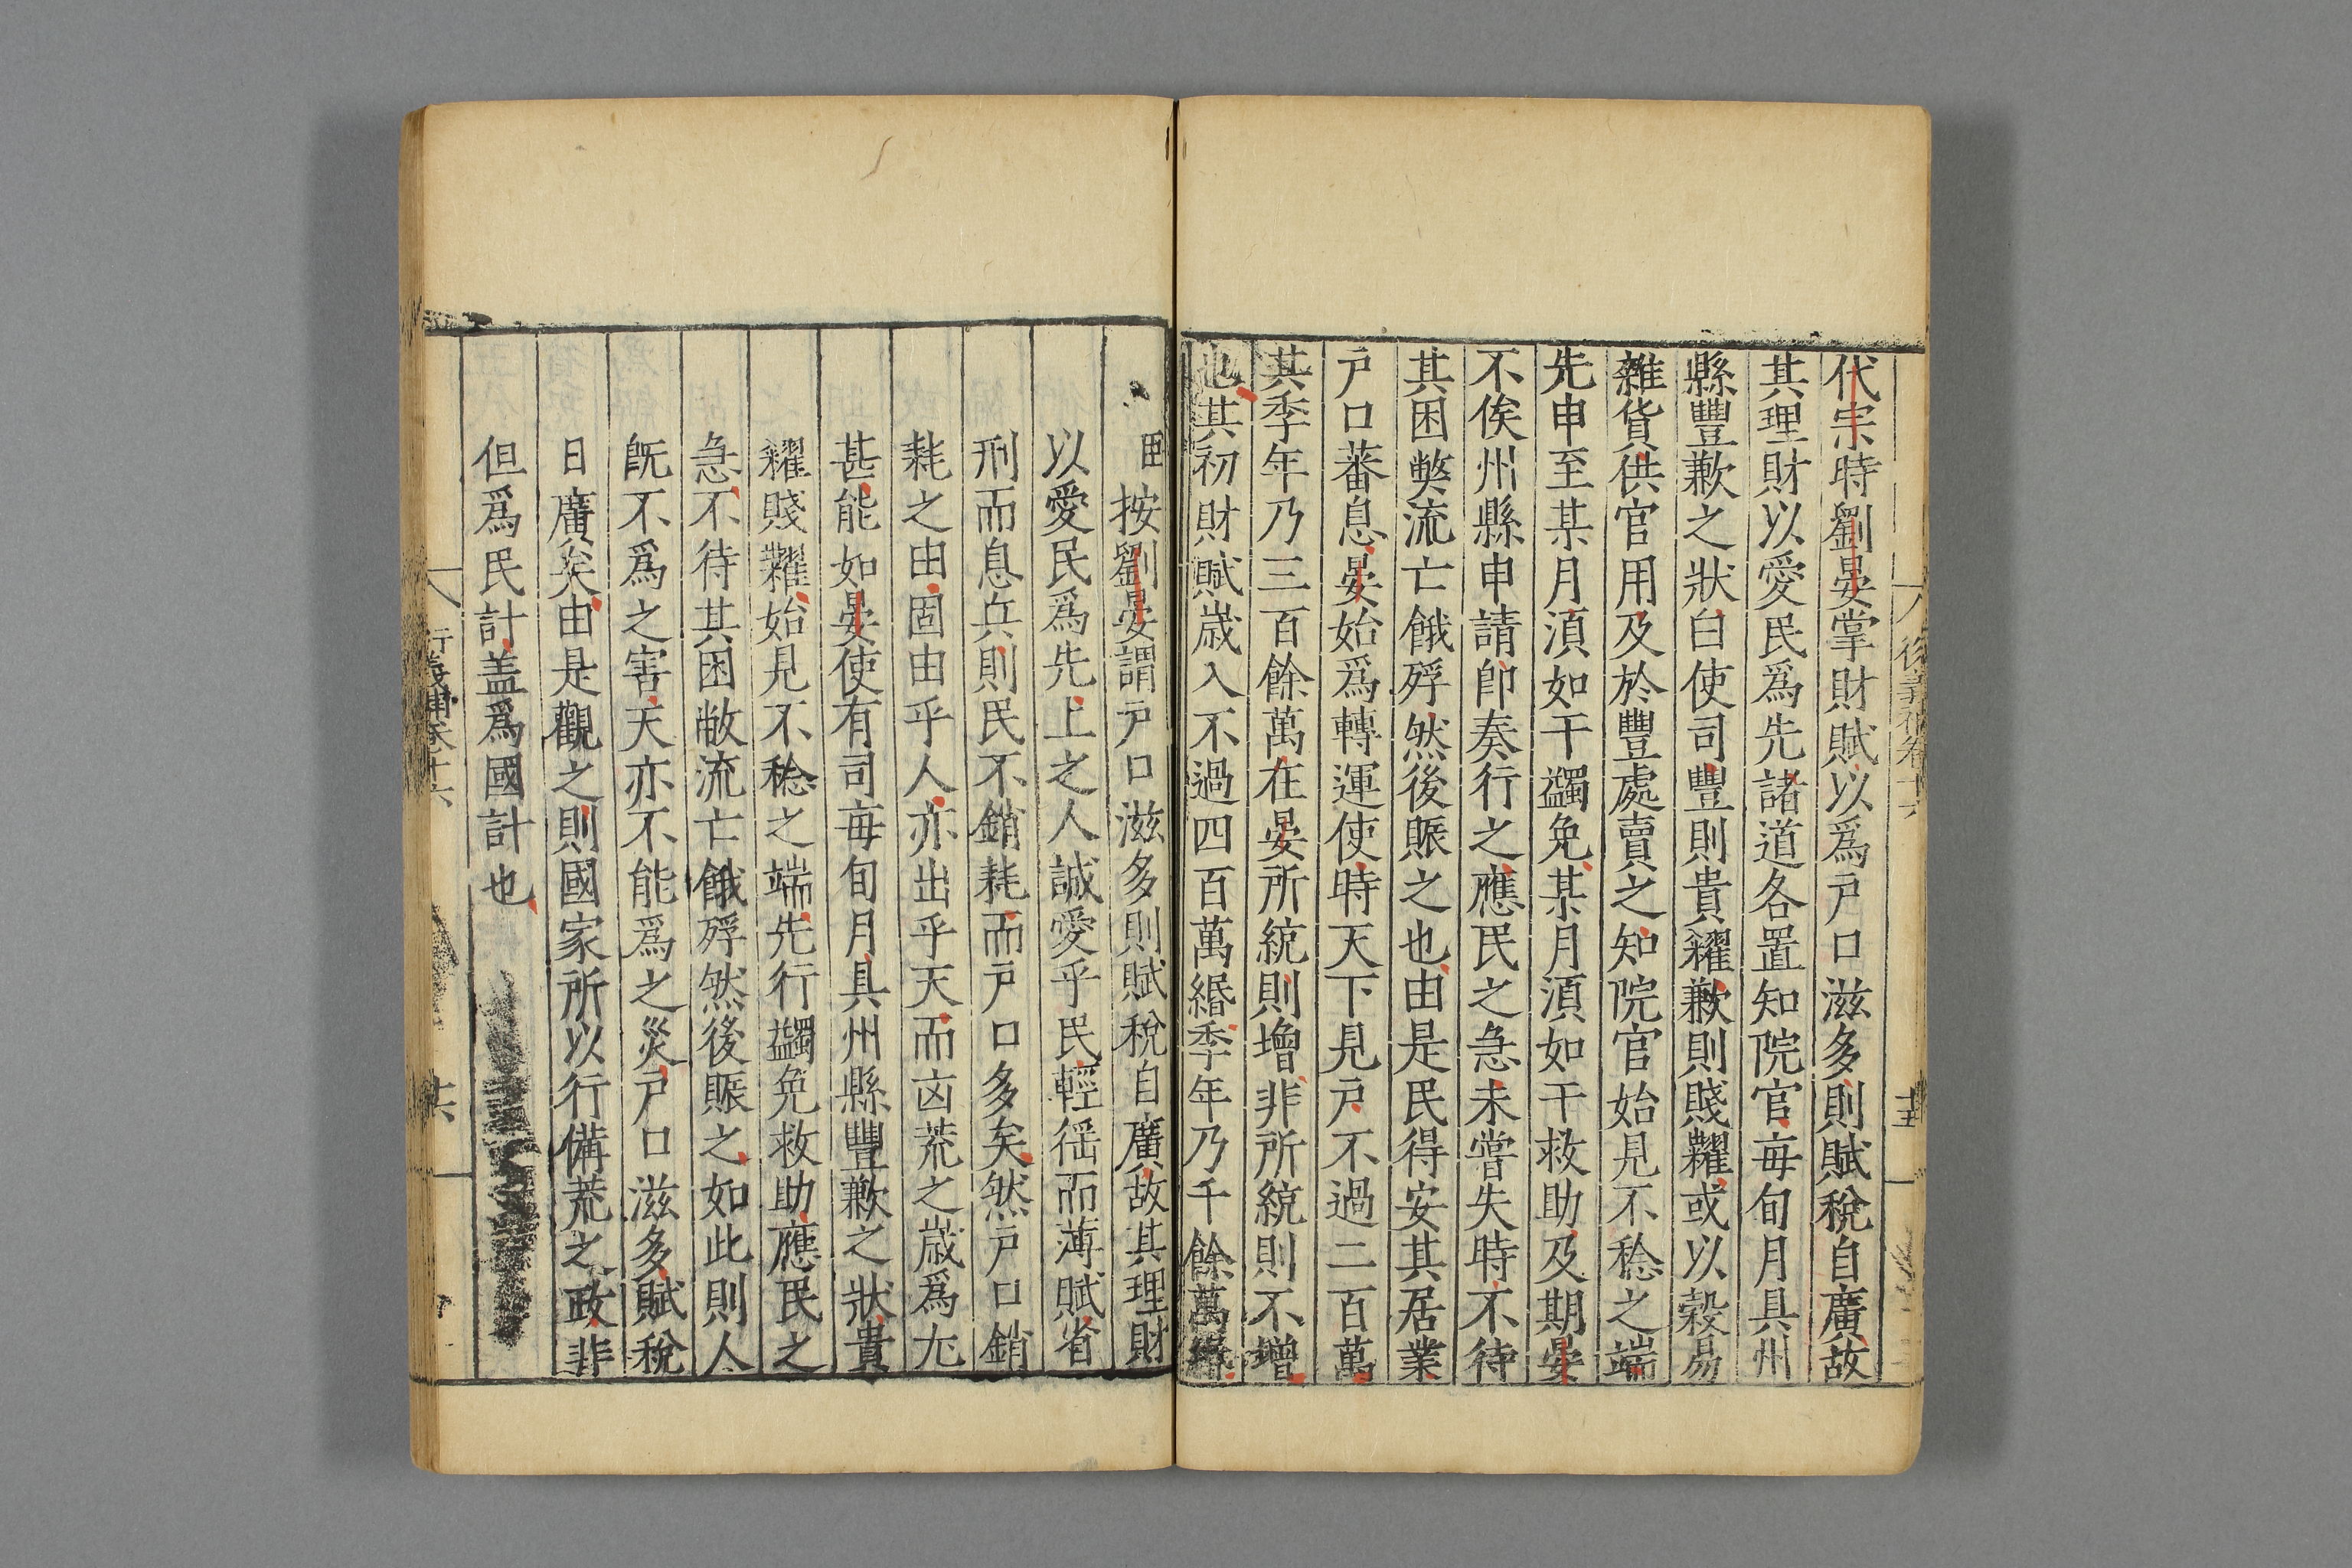 代宗時劉晏掌財賦以爲戸口滋多則賦稅自廣故
其理財以愛民爲先諸道各置知院官每旬月具州
縣豐歉之狀白使司豐則貴糴歉則賤糶或以穀易
雜貨供官用及於豐處賣之知院官始見不稔之端
先申至某月湏如干蠲免某月湏如干救助及期晏
不俟州縣申請卽奏行之應民之急未嘗失時不待
其困獘流亡餓殍然後賑之也由是民得安其居業
戸口蕃息晏始爲轉運使時天下見戸不過二百萬
其季年乃三百餘萬在晏所統則增非所統則不增
也其初財賦歲入不過四百萬緡季年乃千餘萬緡
按劉晏謂戸口滋多則賦稅自廣故其理財
以愛民爲先上之人誠愛乎民輕徭而薄賦省
刑而息兵則民不銷耗而戸口多矣然戸口銷
耗之由固由乎人亦出乎天而凶荒之歲爲尢
甚能如晏使有司每旬月具州縣豐歉之狀貴
糴賤糶始見不稔之端先行蠲免救助應民之
急不待其困敝流亡餓殍然後賑之如此則人
旣不爲之害天亦不能爲之災戸口滋多賦稅
日廣矣由是觀之則國家所以行備荒之政非
但爲民計盖爲國計也